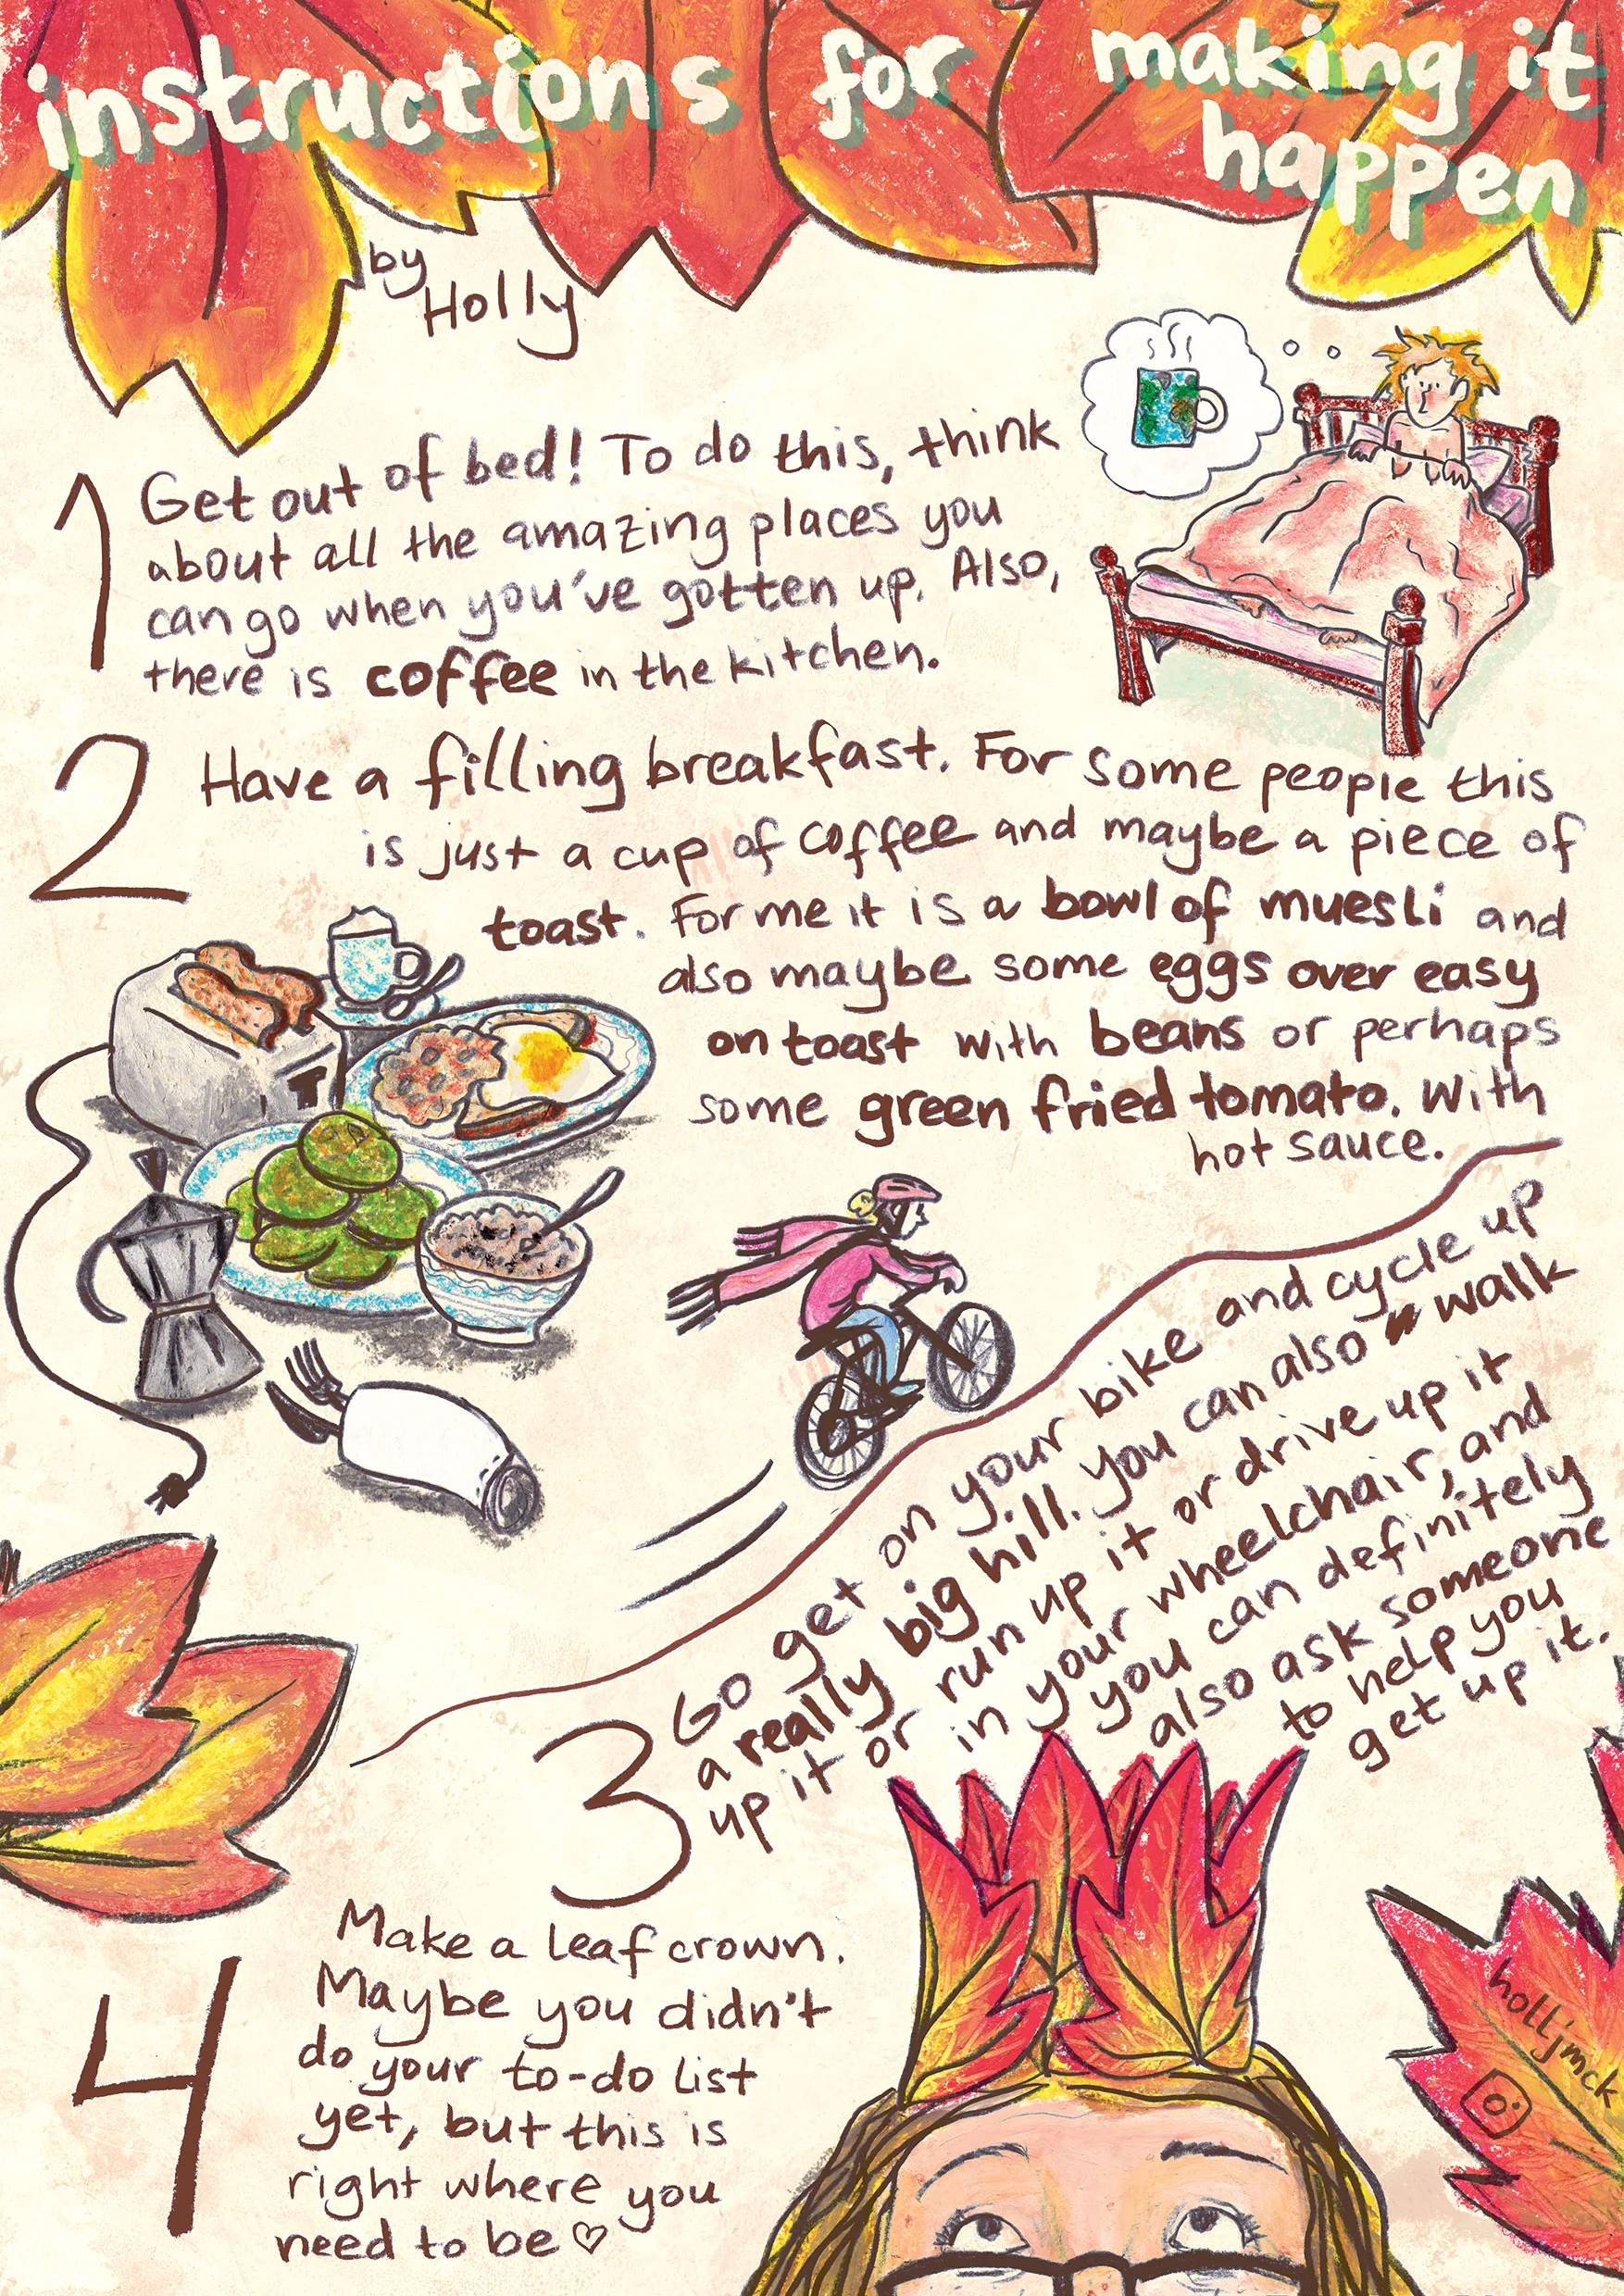 instructions for making it
happen
by
Holly
1 Get out of bed! To do this, think
about all the amazing places you
can go when you've gotten up. Also,
there is coffee in the kitchen.
2 Have a filling breakfast. For some people this
is just a cup of coffee and maybe a piece of
toast. For me it is a bowl of muesli and
also maybe some eggs over easy
on toast with beans or perhaps
some green fried tomato. With
hot sauce.
3 Go get on your bike and cycle up
a really big hill. You can also walk
up it or run up it or drive up it
in your wheelchair, and
you can definitely
also ask someone
to help you
get up it.
4 Make a leaf crown.
Maybe you didn't
do your to-do list
yet, but this is
right where you
need to be ♡
holljmck